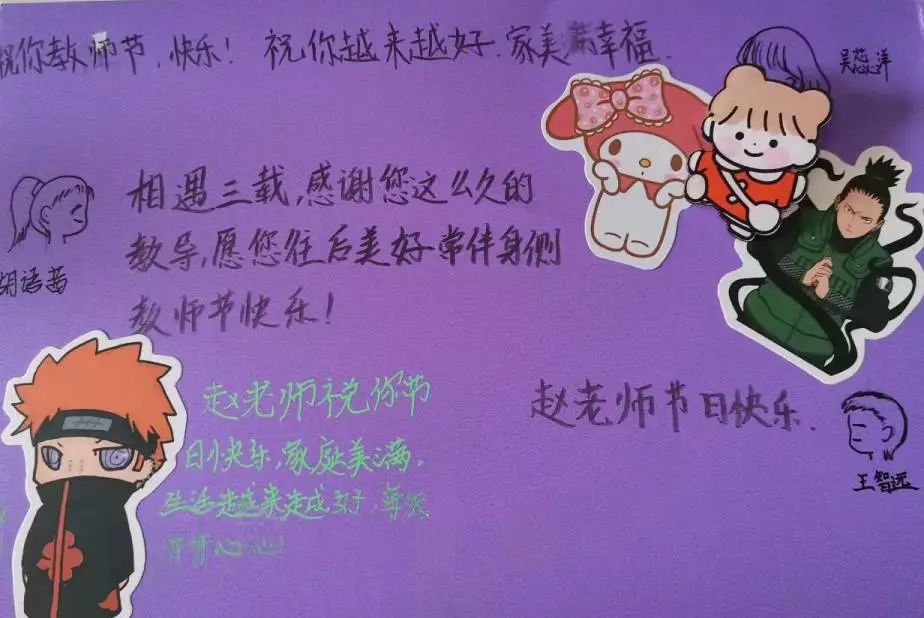 祝你教师节,快乐! 祝你越来越好.家美满幸福.
吴蕊洋
相遇三载,感谢您这么久的
教导,愿您往后美好常伴身侧
教师节快乐!
胡语茜
赵老师祝你节
日快乐,家庭美满。
生活越来越好,每天
开开心心!
赵老师节日快乐.
王智远